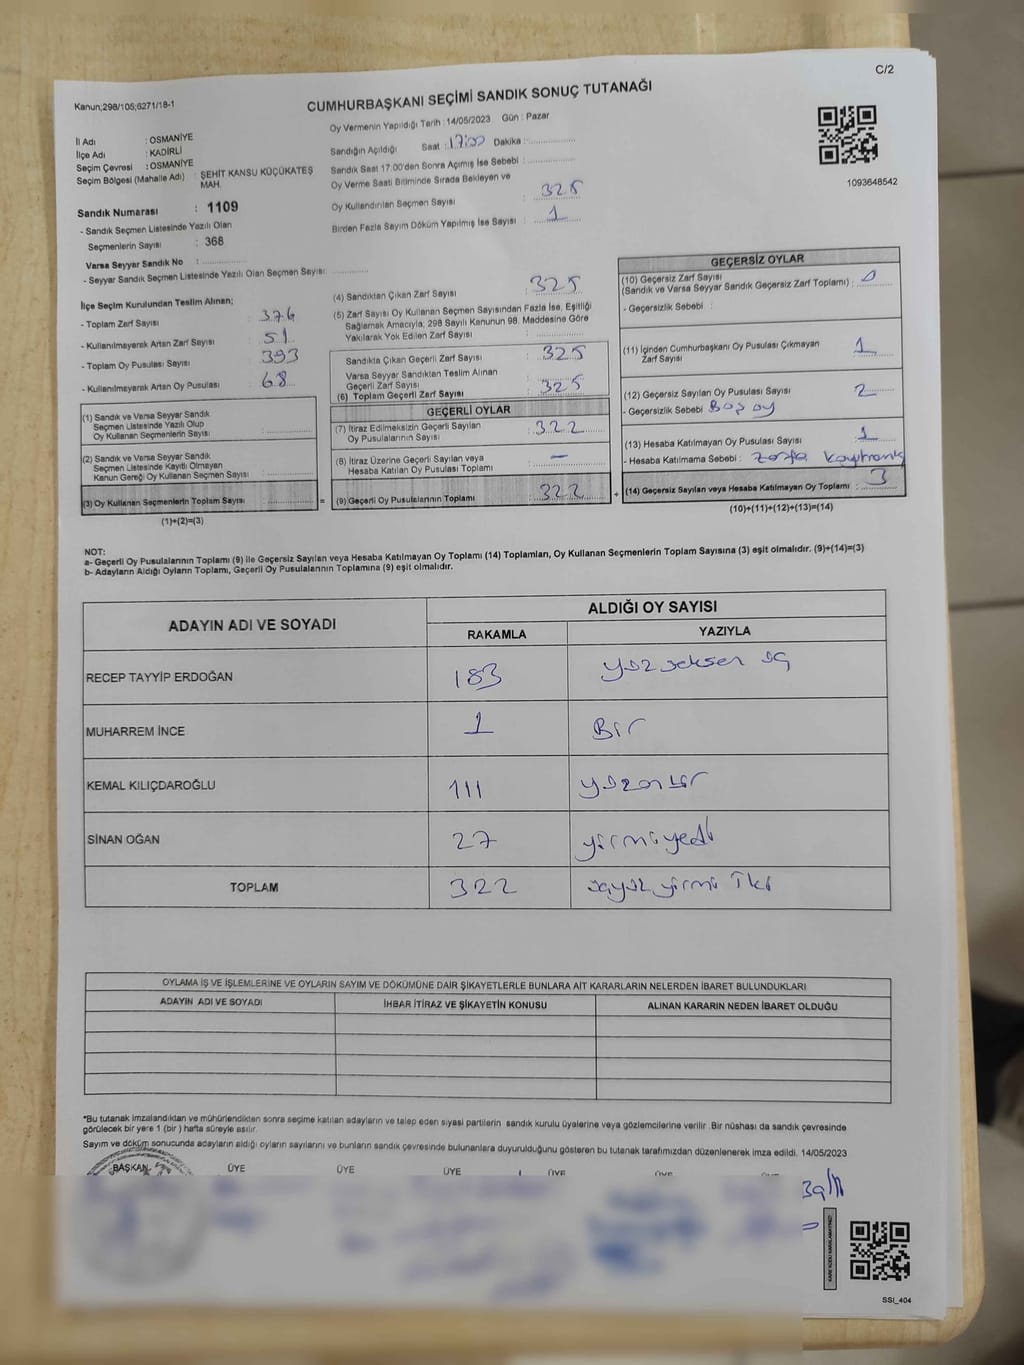 C/2
Kanun;298/105;6271/18-1
CUMHURBAŞKANI SEÇİMİ SANDIK SONUÇ TUTANAĞI
Oy Vermenin Yapıldığı Tarih : 14/05/2023 Gün : Pazar
İl Adı : OSMANİYE
İlçe Adı : KADİRLİ
Seçim Çevresi : OSMANİYE
Seçim Bölgesi (Mahalle Adı) : ŞEHİT KANSU KÜÇÜKATEŞ MAH.
Sandık Numarası : 1109
- Sandık Seçmen Listesinde Yazılı Olan
Seçmenlerin Sayısı : 368
Varsa Seyyar Sandık No :
- Seyyar Sandık Seçmen Listesinde Yazılı Olan Seçmen Sayısı:
Sandığın Açıldığı Saat : 17:00 Dakika :
Sandık Saat 17.00'den Sonra Açımış İse Sebebi :
Oy Verme Saati Bitiminde Sırada Bekleyen ve
Oy Kullandırılan Seçmen Sayısı : 325
Birden Fazla Sayım Döküm Yapılmış İse Sayısı : 1
1093648542
İlçe Seçim Kurulundan Teslim Alınan;
- Toplam Zarf Sayısı : 376
- Kullanılmayarak Artan Zarf Sayısı : 51
- Toplam Oy Pusulası Sayısı : 393
- Kullanılmayarak Artan Oy Pusulası : 68
(1) Sandık ve Varsa Seyyar Sandık
Seçmen Listesinde Yazılı Olup
Oy Kullanan Seçmenlerin Sayısı :
(2) Sandık ve Varsa Seyyar Sandık
Seçmen Listesinde Kayıtlı Olmayan
Kanun Gereği Oy Kullanan Seçmen Sayısı :
(3) Oy Kullanan Seçmenlerin Toplam Sayısı :
(1)+(2)=(3)
(4) Sandıktan Çıkan Zarf Sayısı : 325
(5) Zarf Sayısı Oy Kullanan Seçmen Sayısından Fazla İse, Eşitliği
Sağlamak Amacıyla, 298 Sayılı Kanunun 98. Maddesine Göre
Yakılarak Yok Edilen Zarf Sayısı :
Sandıkta Çıkan Geçerli Zarf Sayısı : 325
Varsa Seyyar Sandıktan Teslim Alınan
Geçerli Zarf Sayısı :
(6) Toplam Geçerli Zarf Sayısı : 325
GEÇERLİ OYLAR
(7) İtiraz Edilmeksizin Geçerli Sayılan
Oy Pusulalarının Sayısı : 322
(8) İtiraz Üzerine Geçerli Sayılan veya
Hesaba Katılan Oy Pusulası Toplamı : -
= (9) Geçerli Oy Pusulalarının Toplamı : 322
GEÇERSİZ OYLAR
(10) Geçersiz Zarf Sayısı
(Sandık ve Varsa Seyyar Sandık Geçersiz Zarf Toplamı) : 0
- Geçersizlik Sebebi :
(11) İçinden Cumhurbaşkanı Oy Pusulası Çıkmayan
Zarf Sayısı : 1
(12) Geçersiz Sayılan Oy Pusulası Sayısı : 2
- Geçersizlik Sebebi : Boş oy
(13) Hesaba Katılmayan Oy Pusulası Sayısı : 1
- Hesaba Katılmama Sebebi :
+ (14) Geçersiz Sayılan veya Hesaba Katılmayan Oy Toplamı : 3
(10)+(11)+(12)+(13)=(14)
NOT:
a- Geçerli Oy Pusulalarının Toplamı (9) ile Geçersiz Sayılan veya Hesaba Katılmayan Oy Toplamı (14) Toplamları, Oy Kullanan Seçmenlerin Toplam Sayısına (3) eşit olmalıdır. (9)+(14)=(3)
b- Adayların Aldığı Oyların Toplamı, Geçerli Oy Pusulalarının Toplamına (9) eşit olmalıdır.
ADAYIN ADI VE SOYADI
ALDIĞI OY SAYISI
RAKAMLA YAZIYLA
RECEP TAYYİP ERDOĞAN 183 yüzseksen üç
MUHARREM İNCE 1 Bir
KEMAL KILIÇDAROĞLU 111 yüzonbir
SİNAN OĞAN 27 yirmiyedi
TOPLAM 322 üçyüz yirmi iki
OYLAMA İŞ VE İŞLEMLERİNE VE OYLARIN SAYIM VE DÖKÜMÜNE DAİR ŞİKAYETLERLE BUNLARA AİT KARARLARIN NELERDEN İBARET BULUNDUKLARI
ADAYIN ADI VE SOYADI İHBAR İTİRAZ VE ŞİKAYETİN KONUSU ALINAN KARARIN NEDEN İBARET OLDUĞU
*Bu tutanak imzalandıktan ve mühürlendikten sonra seçime katılan adayların ve talep eden siyasi partilerin sandık kurulu üyelerine veya gözlemcilerine verilir .Bir nüshası da sandık çevresinde
görülecek bir yere 1 (bir ) hafta süreyle asılır.
Sayım ve döküm sonucunda adayların aldığı oyların sayılarını ve bunların sandık çevresinde bulunanlara duyurulduğunu gösteren bu tutanak tarafımızdan düzenlenerek imza edildi. 14/05/2023
BAŞKAN ÜYE ÜYE ÜYE ÜYE
SSI_404